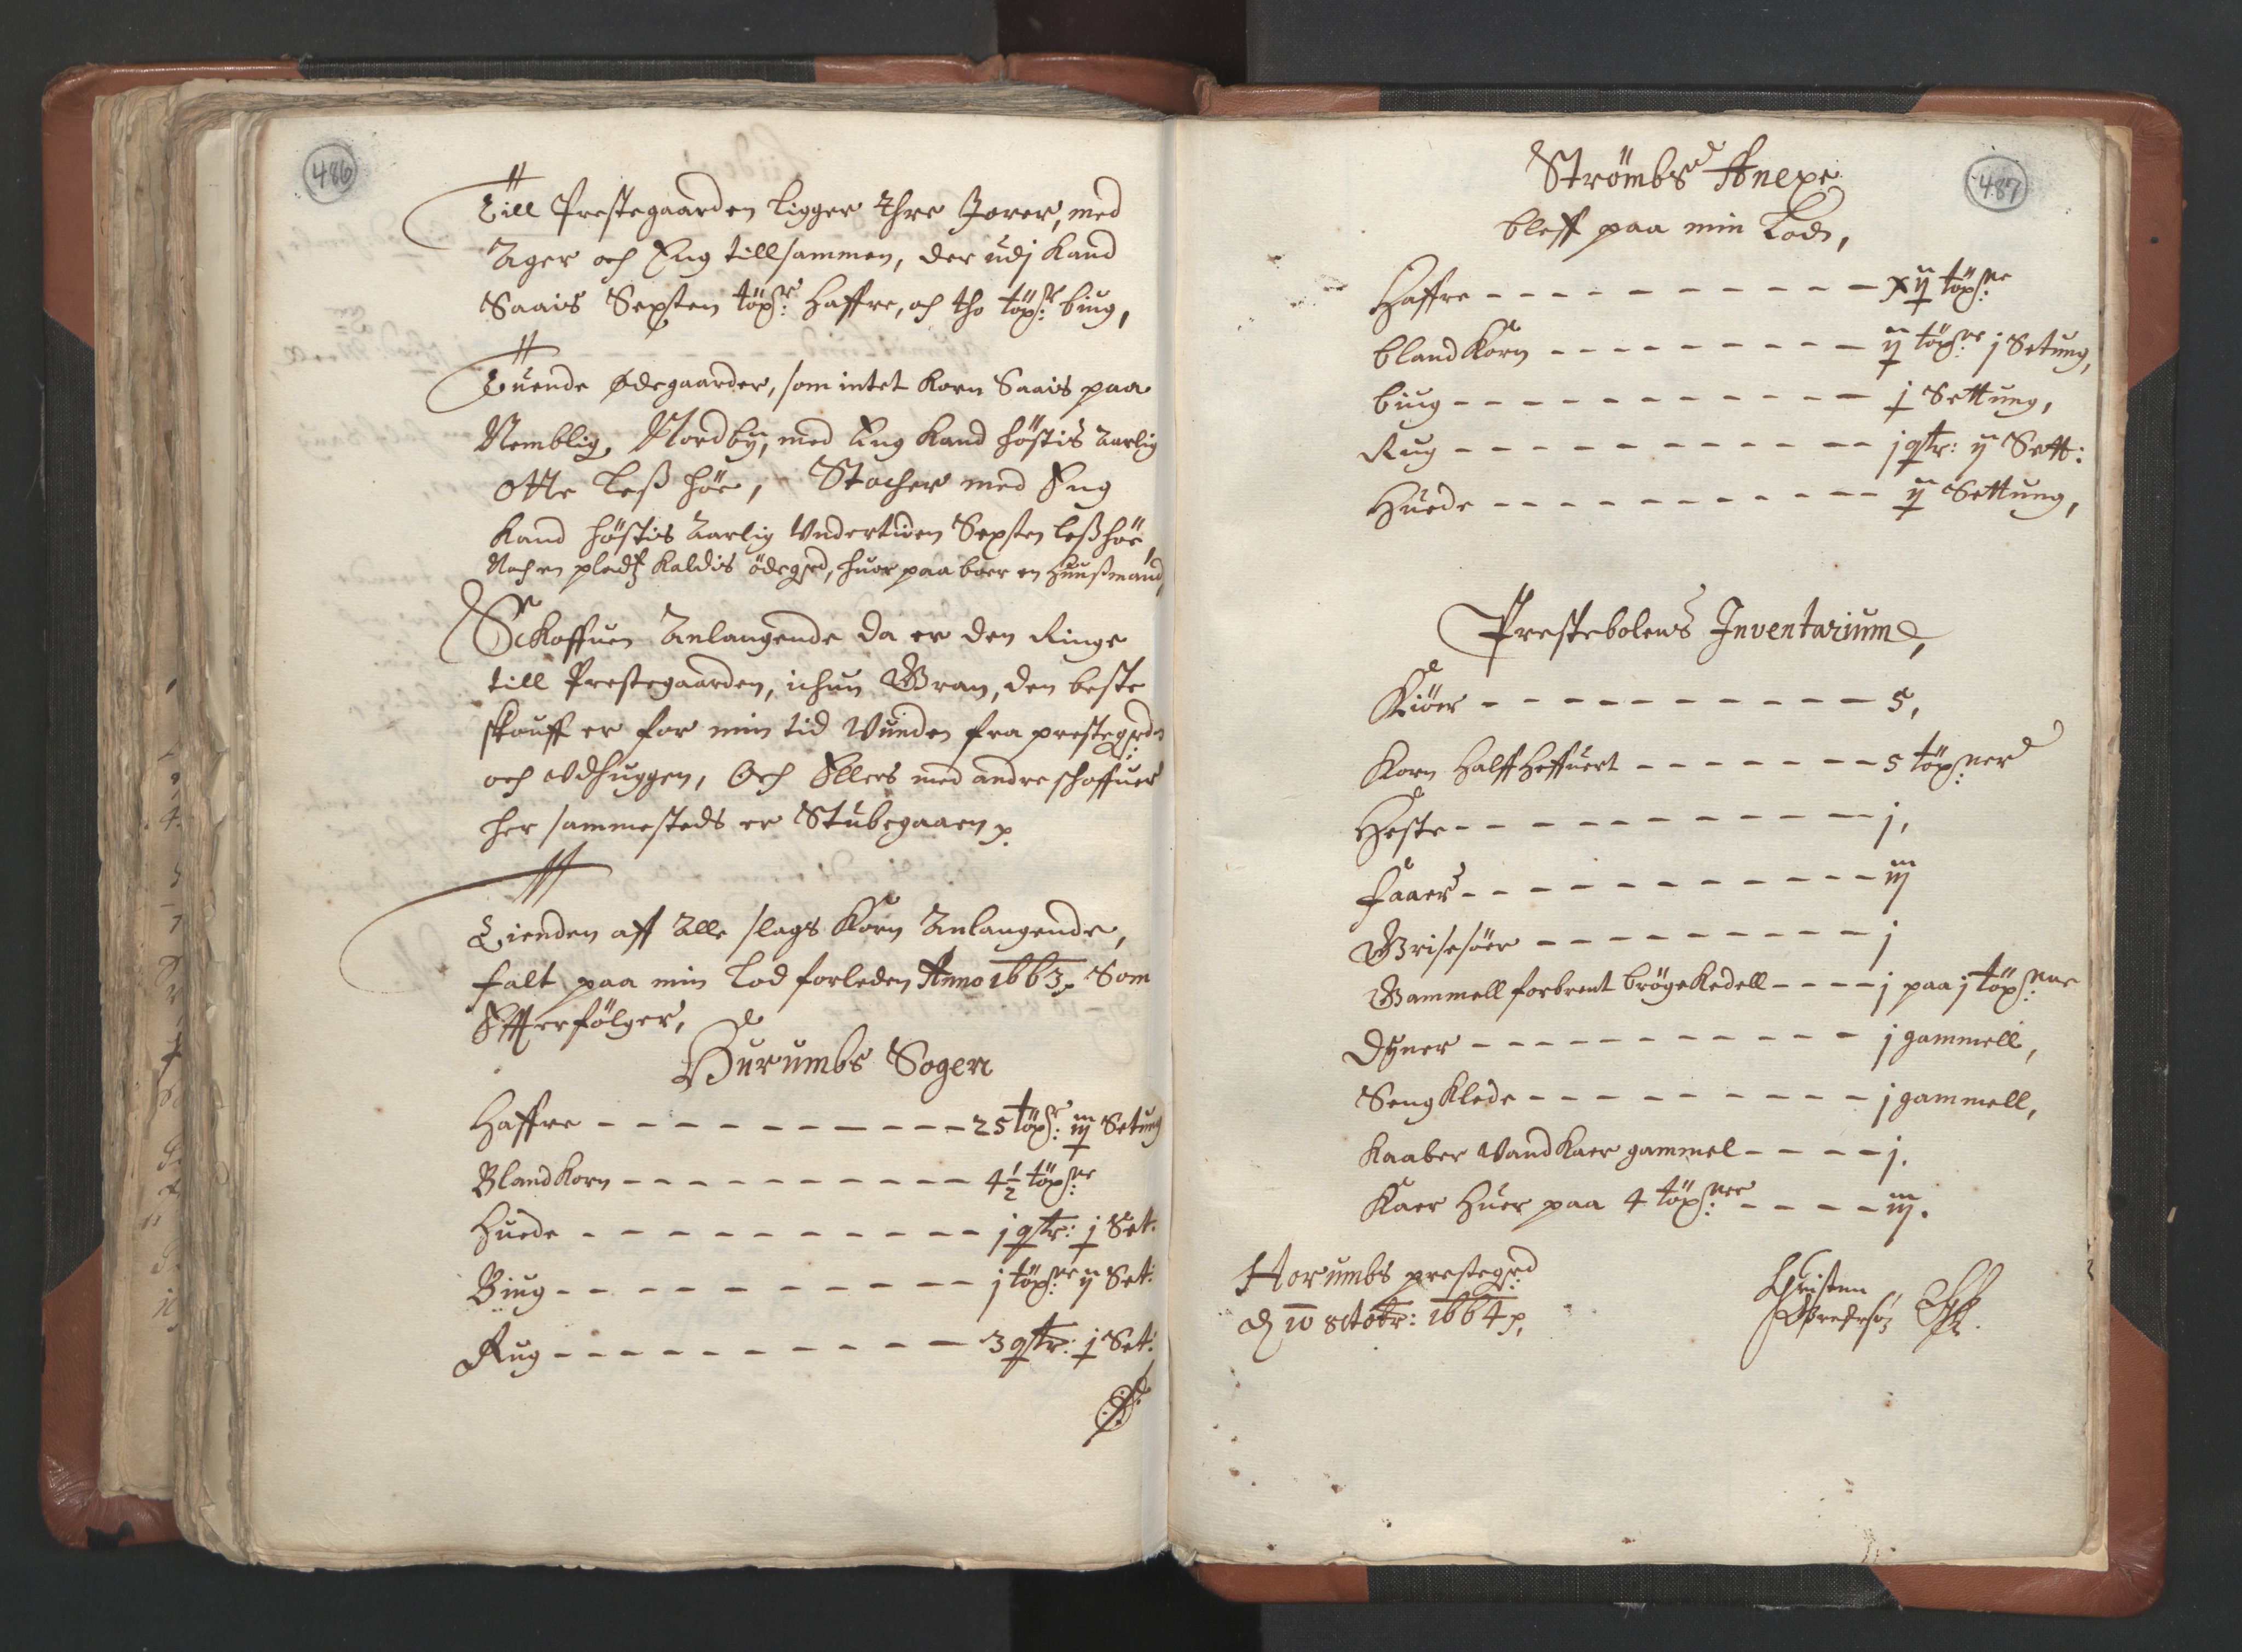 486
Till Prestegaarden Ligger thre Jorer, med
Ager och Eng tillsammen, der udj kand
Saais Sexsten töndr: Haffre, och tho tönd: biug,
Tuende ødegaarder, som intet korn Saais paa
Nemblig, Nordby, med Eng kand höstis aarlig
otte Less höe, Stocher med Eng
kand höstis aarlig Undertiden Sexsten less höe,
Noch en pladz kaldis ödegrd, huor paa boer en Huussmand,
Schoffuen Anlangende da er den Ringe
till Prestegaarden, ichun Gran, den beste
skouff er for min tid Vunden fra prestegrden
och udhuggen, Och Ellers med andre schoffuer
her sammesteds er Stubegaaen p.
Tienden aff alle slags Korn Anlangende,
falt paa min Lod forleden Anno 1663, Som
Efterfölger,
Hurumbs Sogen
Haffre - - - - - - - - - - 25 tönd: iij Setung
Blandkorn - - - - - - - - - - 4½ tönd:
Huede - - - - - - - - - - j qtr: j Set.
Biug - - - - - - - - - - j tönde ij Set:
Rug - - - - - - - - - - 3 qtr: j Set:
487
Strömbs Anexe
bleff paa min Lod,
Haffre - - - - - - - - - - xij tönder
blandkorn - - - - - - - - - ij tönder j Setung,
biug - - - - - - - - - - j Settung,
Rug - - - - - - - - - - j qtr: ij Sett:
Huede - - - - - - - - - - ij Settung,
Prestebolens Inventarium,
Kiöer - - - - - - - - - - 5,
Korn Halff Heffuert - - - - - - - 5 tönder
Heste - - - - - - - - - - j,
Faaer - - - - - - - - - - iij
Grisesöer - - - - - - - - - j
Gammell forbrent bröge kedell - - - - j paa j tönde
Dyner - - - - - - - - - - j gammell,
Sengklede - - - - - - - - - j gammell,
Kaaber Vandkaer gammel - - - - j.
Kaer Huer paa 4 tönder - - - - iij.
Horumbs prestegrd
d 10 octobr: 1664 p,
Christen